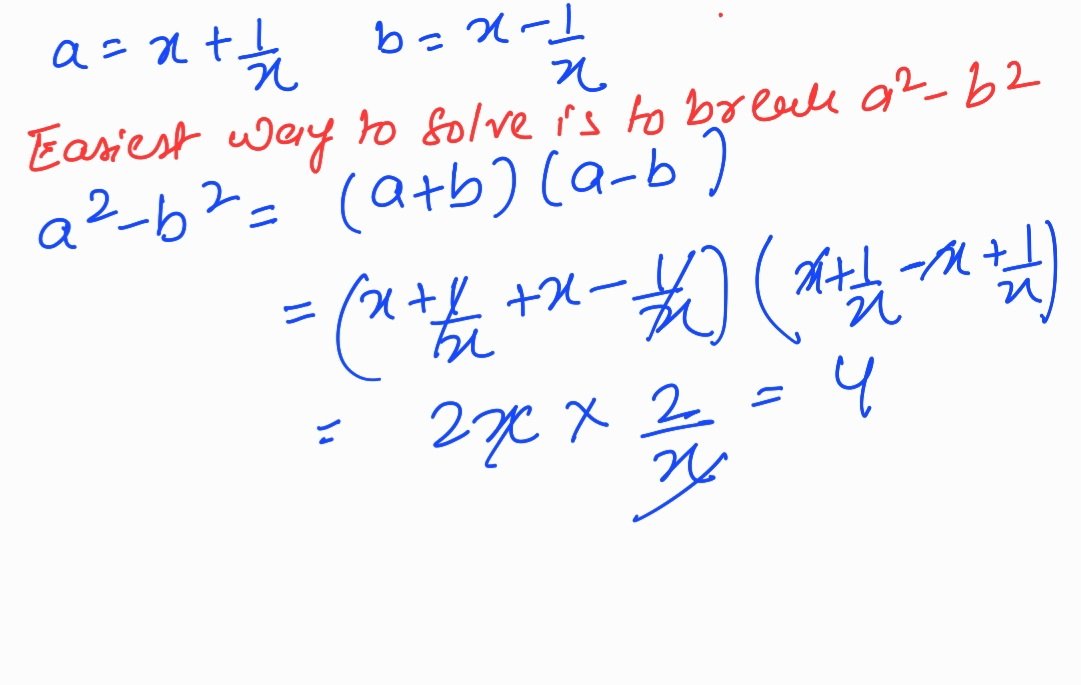 a = x + 1/x b = x - 1/x
Easiest way to solve is to break a² - b²
a² - b² = (a+b) (a-b)
= (x + 1/x + x - 1/x) (x + 1/x - x + 1/x)
= 2x × 2/x = 4